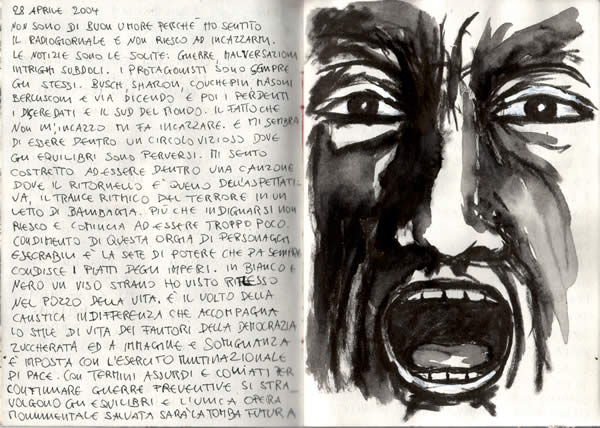 28 APRILE 2004
NON SONO DI BUON UMORE PERCHE' HO SENTITO
IL RADIOGIORNALE E NON RIESCO AD INCAZZARMI.
LE NOTIZIE SONO LE SOLITE: GUERRE, MALVERSAZIONI
INTRIGHI SUBDOLI. I PROTAGONISTI SONO SEMPRE
GLI STESSI. BUSCH, SHARON, COUCHEPIN MASONI
BERLUSCONI E VIA DICENDO E POI I PERDENTI
I DISEREDATI E IL SUD DEL MONDO. IL FATTO CHE
NON M'INCAZZO MI FA INCAZZARE. E MI SEMBRA
DI ESSERE DENTRO UN CIRCOLO VIZIOSO DOVE
GLI EQUILIBRI SONO PERVERSI. MI SENTO
COSTRETTO AD ESSERE DENTRO UNA CANZONE
DOVE IL RITORNELLO E' QUELLO DELL'ASPETTATI-
VA, IL TRANCE RITMICO DEL TERRORE IN UN
LETTO DI BAMBAGIA. PIÙ CHE INDIGNARSI NON
RIESCO E COMINCIA AD ESSERE TROPPO POCO.
CONDIMENTO DI QUESTA ORGIA DI PERSONAGGI
ESECRABILI E' LA SETE DI POTERE CHE DA SEMPRE
CONDISCE I PIATTI DEGLI IMPERI. IN BIANCO E
NERO UN VISO STRANO HO VISTO RIFLESSO
NEL POZZO DELLA VITA. E' IL VOLTO DELLA
CAUSTICA INDIFFERENZA CHE ACCOMPAGNA
LO STILE DI VITA DEI FAUTORI DELLA DEMOCRAZIA
ZUCCHERATA ED A IMMAGINE E SOMIGLIANZA
E' IMPOSTA CON L'ESERCITO MULTINAZIONALE
DI PACE. CON TERMINI ASSURDI E CONIATI PER
CONTINUARE GUERRE PREVENTIVE SI STRA-
VOLGONO GLI EQUILIBRI E L'UNICA OPERA
MONUMENTALE SALVATA SARÀ LA TOMBA FUTURA